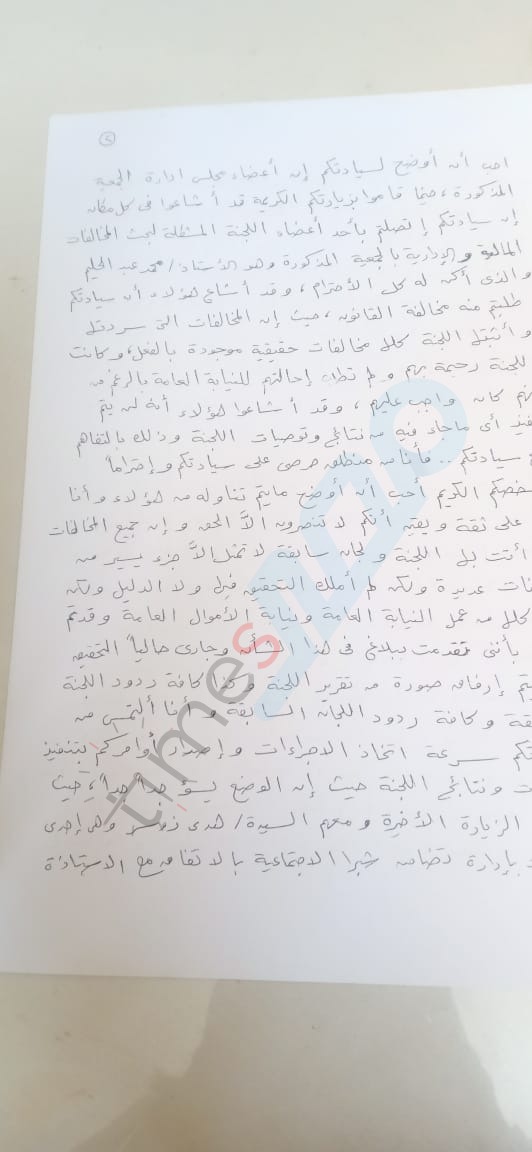 ٢
احب أن أوضح لسيادتكم إن أعضاء مجلس ادارة الجمعية
المذكورة، حينما قاموا بزيارتكم الكريمة قد أشاعوا فى كل مكان
إن سيادتكم إتصلتم بأحد أعضاء اللجنة المشكلة لبحث المخالفات
المالية والإدارية بالجمعية المذكورة وهو الأستاذ/ محمد عبد الحليم
والذى أكن له كل الأحترام، وقد أشاع هؤلاء أن سيادتكم
طلبتم منه مخالفة القانون، حيث إن المخالفات التى سردتها
وأثبتها اللجنة كلها مخالفات حقيقية موجودة بالفعل، وكانت
اللجنة رحيمة بهم ولم تطلب إحالتهم للنيابة العامة بالرغم من
كان واجب عليهم، وقد أشاعوا هؤلاء أنه لن يتم
أى ماجاء فيه من نتائج وتوصيات اللجنة وذلك بالتفاهم
سيادتكم .. فأنا من منطلق حرصى على سيادتكم وإحتراماً
لشخصكم الكريم أحب أن أوضح مايتم تناوله من هؤلاء وأنا
على ثقة ويقين أنكم لا تنصرون الاَّ الحق وإن جميع المخالفات
أتت بها اللجنة ولجان سابقة لا تمثل الاَّ جزء يسير من
عديدة ولكن لم أملك التحقيق فيها ولا الدليل ولكن
كلها من عمل النيابة العامة ونيابة الأموال العامة وقد تم
بأننى تقدمت ببلاغ فى هذا الشأن وجارى حالياً التحقيق
إرفاق صورة من تقرير اللجنة وكذا كافة ردود اللجنة
وكافة ردود اللجان السابقة وأنا ألتمس من
سرعة اتخاذ الاجراءات وإصدار أوامركم بتنفيذ
ونتائج اللجنة حيث إن الوضع يسؤ جداً جداً، حيث
الزيارة الأخيرة ومعهم السيدة/ هدى وهى إحدى
بإدارة تضامن شبرا الاجتماعية بالاتفاق مع الاستاذة
مصر
times